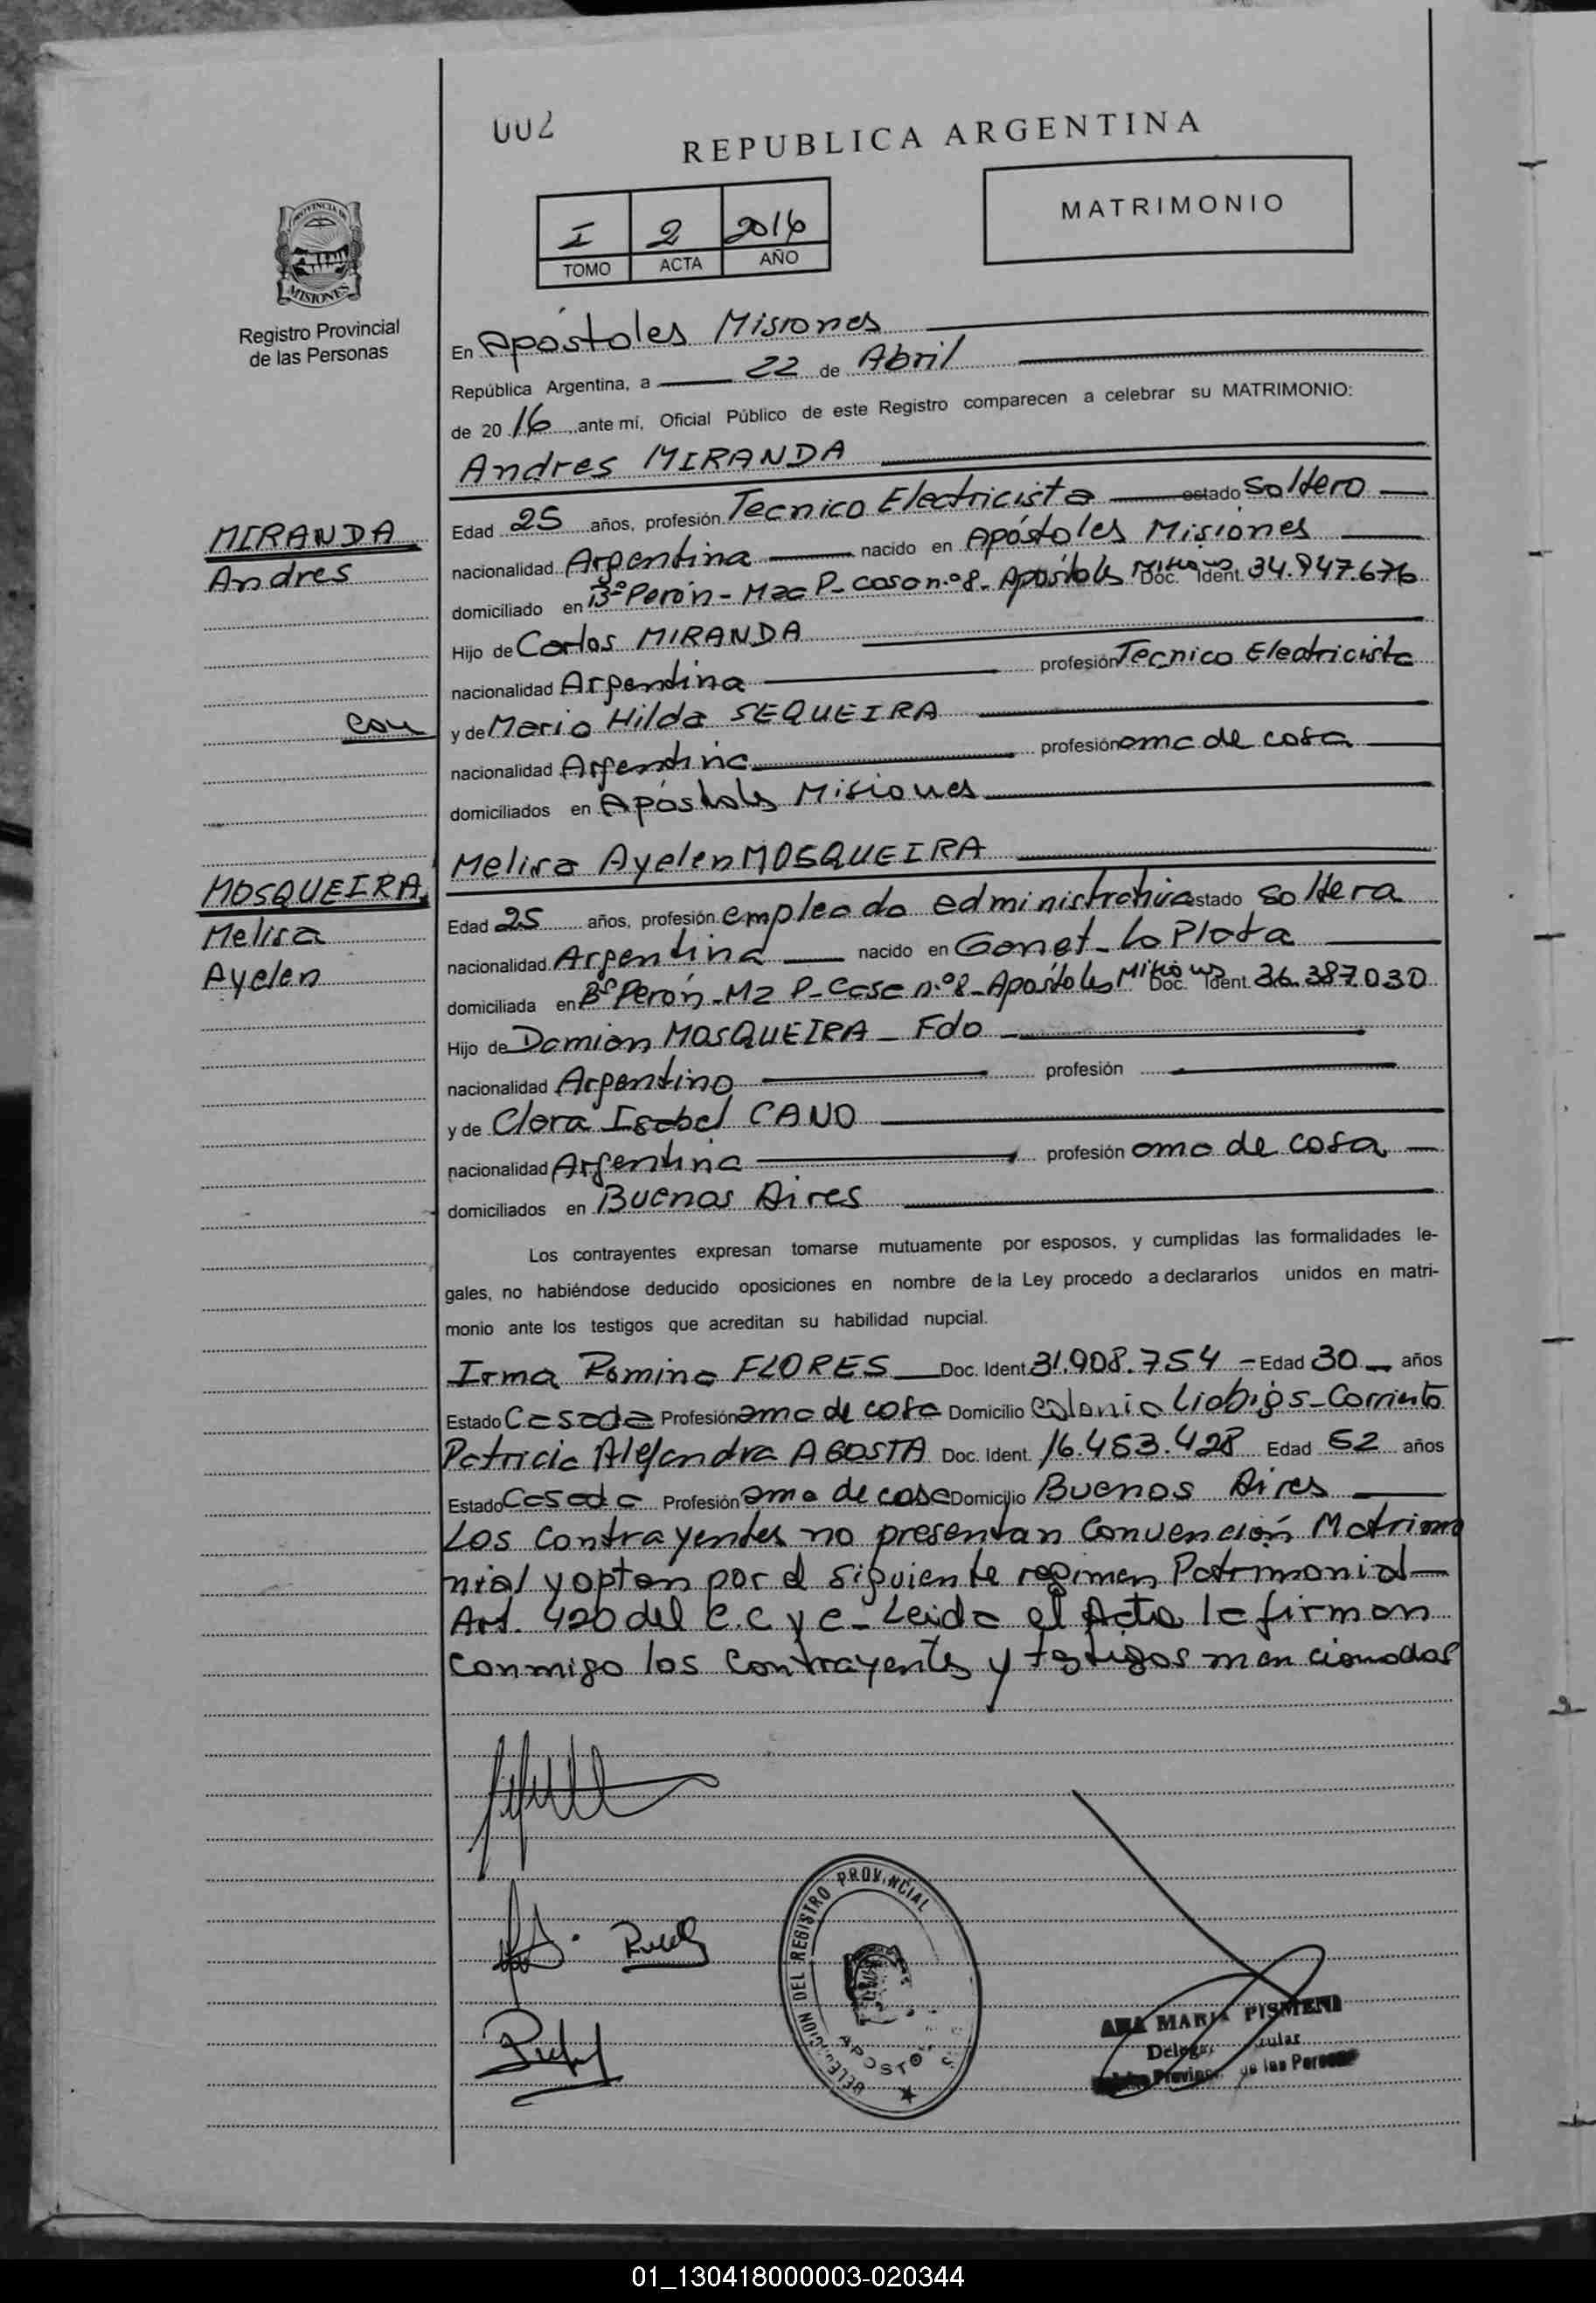 002
REPUBLICA ARGENTINA
MATRIMONIO
I 2 2016
TOMO ACTA AÑO
PROVINCIA DE
MISIONES
Registro Provincial
de las Personas
En Apóstoles Misiones
República Argentina, a 22 de Abril
de 20 16 ante mí, Oficial Público de este Registro comparecen a celebrar su MATRIMONIO:
Andres MIRANDA
Edad 25 años, profesión Tecnico Electricista estado Soltero
MIRANDA
Andres
nacionalidad Argentina nacido en Apóstoles Misiones
domiciliado en Bº Perón - Mza P - Casa n.º 8 - Apóstoles Misiones Doc. Ident. 34.947.676
Hijo de Carlos MIRANDA
nacionalidad Argentina profesión Tecnico Electricista
con
y de Maria Hilda SEQUEIRA
nacionalidad Argentina profesión ama de casa
domiciliados en Apóstoles Misiones
Melisa Ayelen MOSQUEIRA
MOSQUEIRA
Melisa
Ayelen
Edad 25 años, profesión empleada administrativa estado Soltera
nacionalidad Argentina nacido en Gonet - La Plata
domiciliada en Bº Perón - Mz P - Casa n.º 8 - Apóstoles Misiones Doc. Ident. 36.387.030
Hijo de Damian MOSQUEIRA - Fdo
nacionalidad Argentino profesión
y de Clara Isabel CANO
nacionalidad Argentina profesión ama de casa
domiciliados en Buenos Aires
Los contrayentes expresan tomarse mutuamente por esposos, y cumplidas las formalidades le-
gales, no habiéndose deducido oposiciones en nombre de la Ley procedo a declararlos unidos en matri-
monio ante los testigos que acreditan su habilidad nupcial.
Irma Romina FLORES Doc. Ident. 31.908.754 - Edad 30 años
Estado Casada Profesión ama de casa Domicilio Colonia Liebigs - Corrientes
Patricia Alejandra ACOSTA Doc. Ident. 16.453.428 Edad 52 años
Estado Casada Profesión ama de casa Domicilio Buenos Aires
Los contrayentes no presentan Convención Matrimo
nial y optan por el siguiente regimen Patrimonial
Art. 420 del C.C y C - Leida el Acta la firman
conmigo los contrayentes y testigos mencionados
DELEGACION DEL REGISTRO PROVINCIAL
APOSTOLES
ANA MARIA PISMENI
de las Personas
01_130418000003-020344